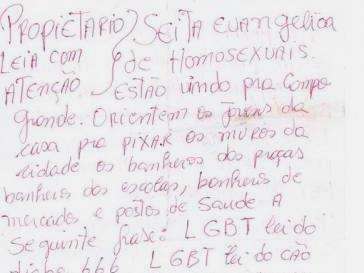 PROPIETARIO) SEITA EVANGELICA
LEIA COM de HOMOSEXUAIS.
ATENÇÃO ESTÃO vindo pra Campo
grande. Orientem os jovens da
casa pra PIXAR os MUROS da
cidade os banheros das praças
banheros das escolas, banheros de
mercados e postos de SAUDE A
Seguinte frase: LGBT lei do
666 LGBT lei do CÃO